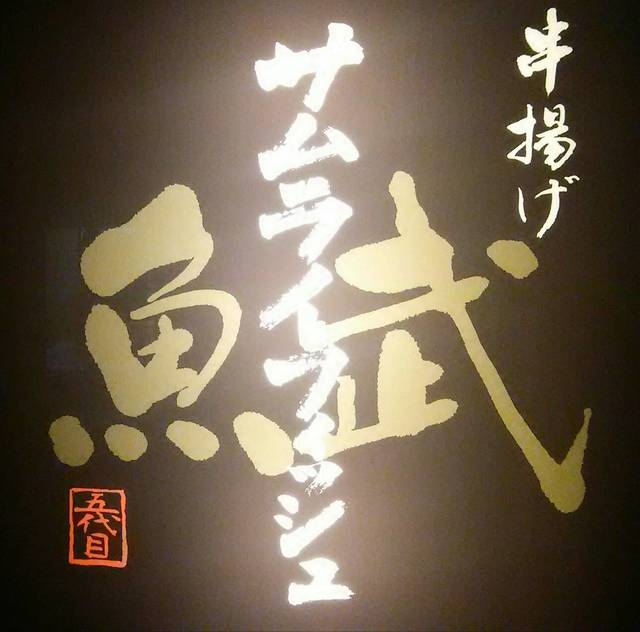 串揚げ
サムライフィッシュ
魚武
五代目